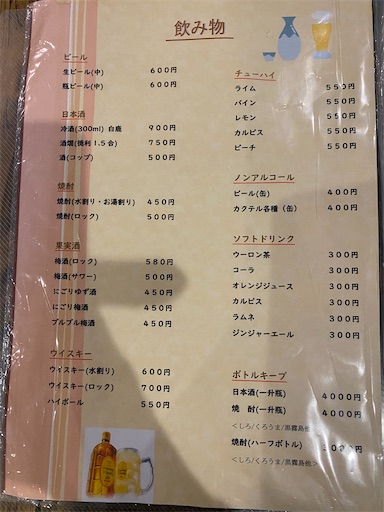 飲み物
ビール
生ビール(中) 600円
瓶ビール(中) 600円
日本酒
冷酒(300ml) 白鹿 900円
酒燗(徳利1.5合) 750円
酒(コップ) 500円
焼酎
焼酎(水割り・お湯割り) 450円
焼酎(ロック) 500円
果実酒
梅酒(ロック) 580円
梅酒(サワー) 500円
にごりゆず酒 450円
にごり梅酒 450円
プルプル梅酒 450円
ウイスキー
ウィスキー(水割り) 600円
ウイスキー(ロック) 700円
ハイボール 550円
チューハイ
ライム 550円
パイン 550円
レモン 550円
カルピス 550円
ピーチ 550円
ノンアルコール
ビール(缶) 400円
カクテル各種(缶) 400円
ソフトドリンク
ウーロン茶 300円
コーラ 300円
オレンジジュース 300円
カルピス 300円
ラムネ 300円
ジンジャーエール 300円
ボトルキープ
日本酒(一升瓶) 4000円
焼 酎(一升瓶) 4000円
<しろ/くろうま/黒霧島他>
焼酎(ハーフボトル) 円
<しろ/くろうま/黒霧島他>